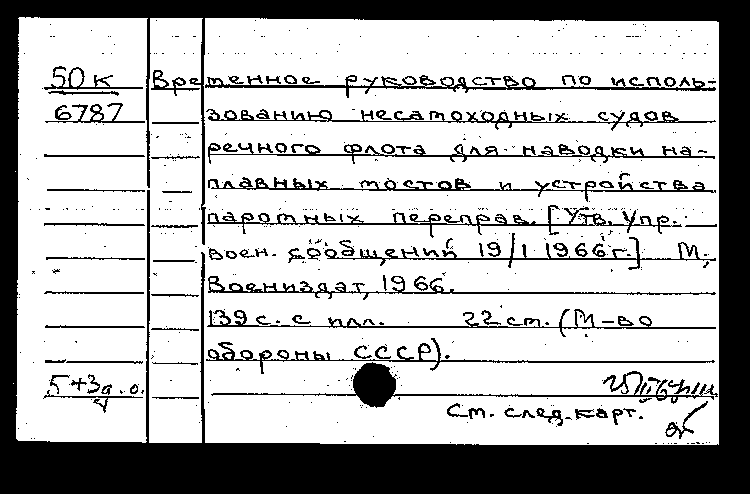 50к Временное руководство по исполь-
6787 зованию несамоходных судов
речного флота для наводки на-
плавных мостов и устройства
паромных переправ. [Утв. Упр.
воен. сообщений 19/I 1966г.] М.,
Воениздат, 1966.
139 с. с илл. 22 см. (М-во
обороны СССР).
5+3д.о.
4
См. след. карт.